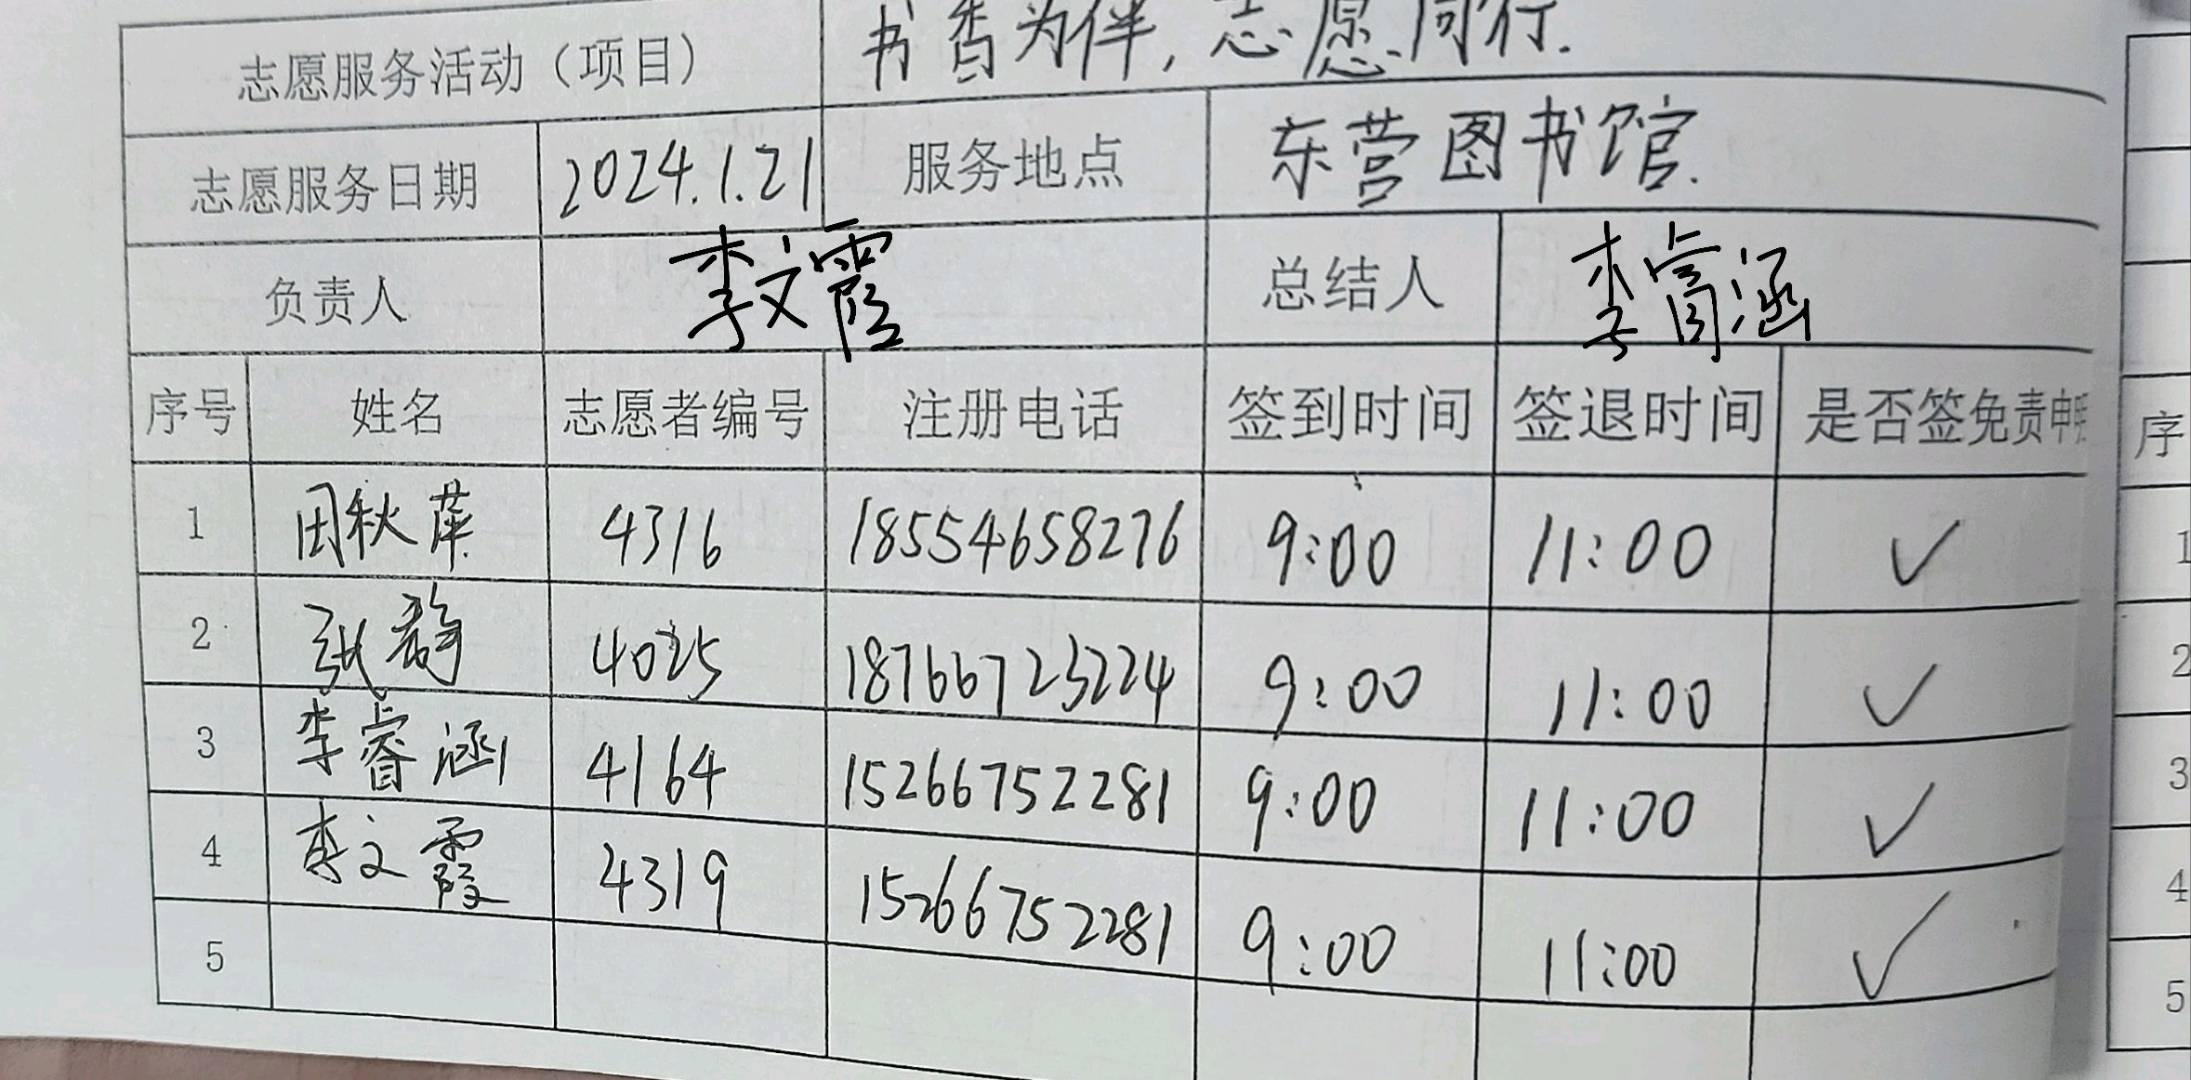 志愿服务活动（项目） 书香为伴,志愿同行.
志愿服务日期 2024.1.21 服务地点 东营图书馆.
负责人 李文霞 总结人 李睿涵
序号 姓名 志愿者编号 注册电话 签到时间 签退时间 是否签免责申 序
1 田秋萍 4316 18554658276 9:00 11:00 ✓ 1
2 张 4025 18766723224 9:00 11:00 ✓ 2
3 李睿涵 4164 15266752281 9:00 11:00 ✓ 3
4 李文霞 4319 15266752281 9:00 11:00 ✓ 4
5 5